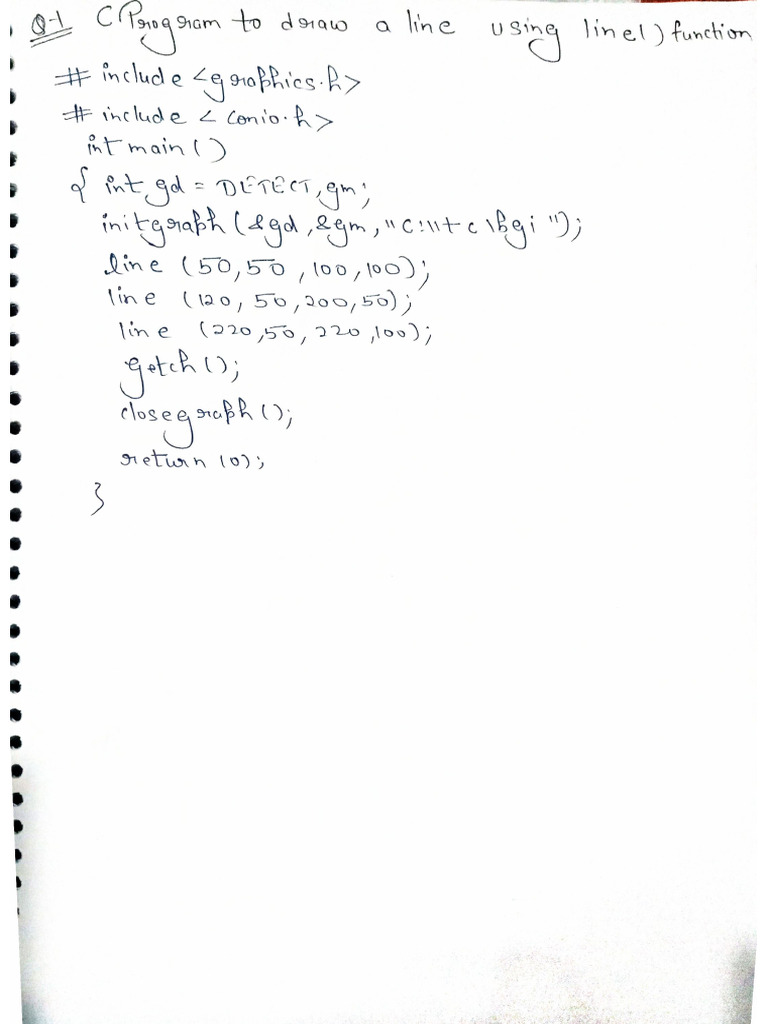 Q-1 C Program to draw a line using line() function
# include <graphics.h>
# include < conio.h>
int main()
{ int gd = DETECT, gm;
initgraph (&gd, &gm, "c:\\tc\bgi");
line (50, 50, 100, 100);
line (120, 50, 200, 50);
line (220, 50, 220, 100);
getch ();
closegraph ();
return (0);
}